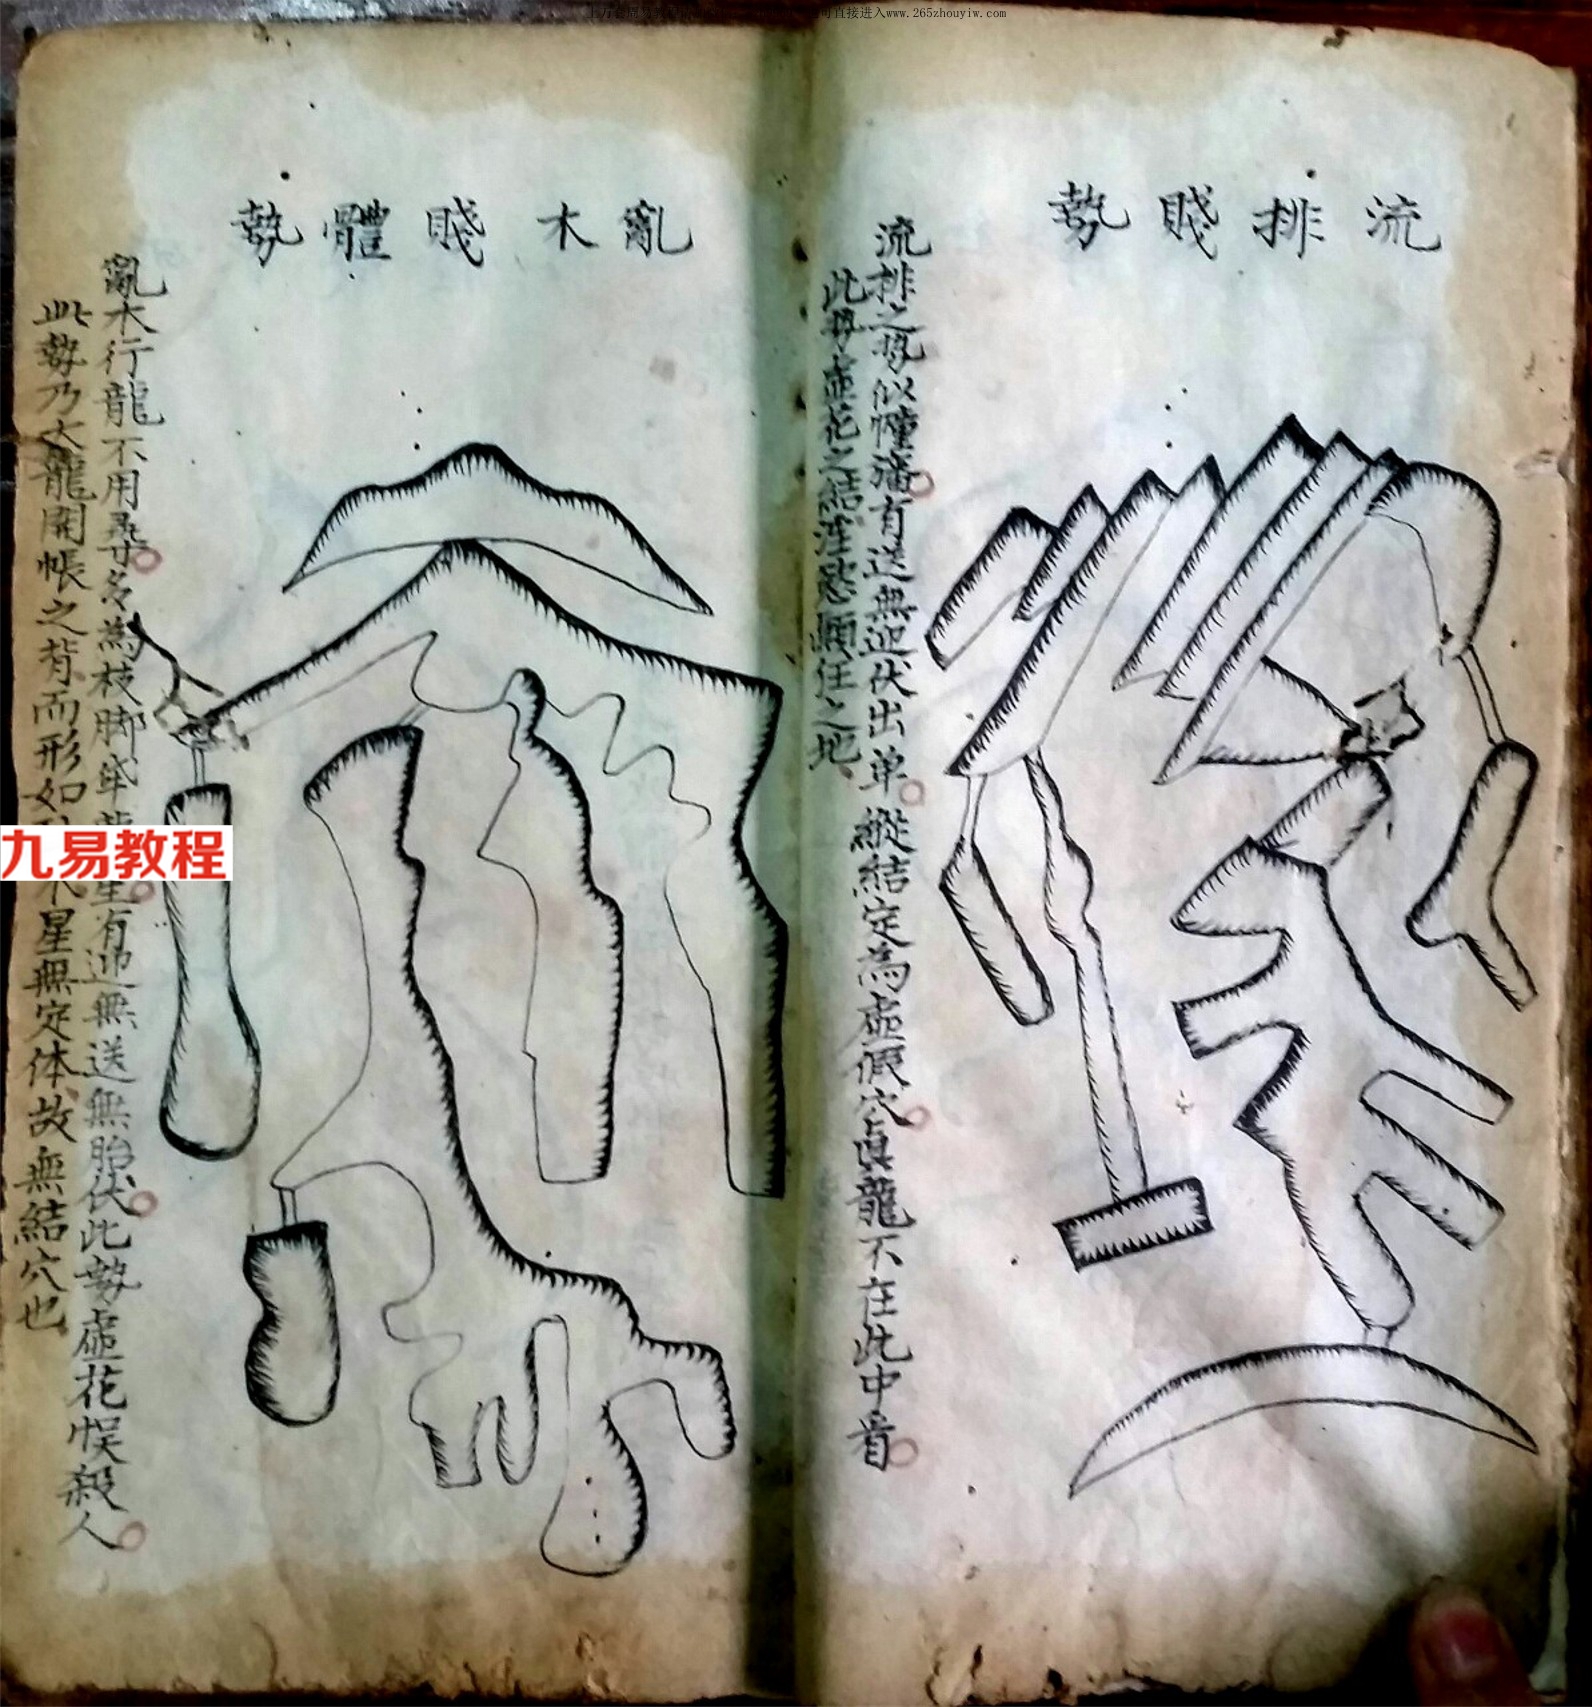 www.265zhouyiw.com
流排賤勢
流排之勢似幢旛有送無迎伏出单縱結定為虛假穴真龍不在此中看
此勢虛花之結淫慾顛狂之地
亂木賤體勢
亂木行龍不用尋多為枝脚有迎無送無胎伏此勢虛花悞殺人
此勢乃大龍開帳之背而形如木星無定体故無結穴也
九易教程